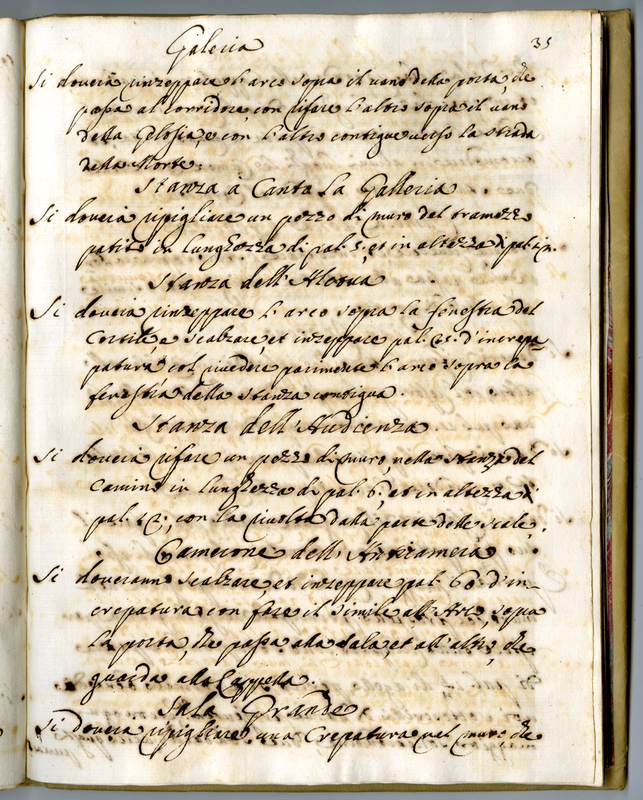 35
Galeria
Si doverà rinzeppare l'arco sopra il vano della porta, che
passa al corridore, con rifare l'altro sopra il vano
della Gelosia, e con l'altro contiguo verso la strada
della Morte.
Stanza à Canto La Galleria
Si doverà ripigliare un pezzo di muro del tramezzo
patito in lunghezza di pal. 5, et in altezza di pal.
Stanza dell'Alcova
Si doverà rinzeppare l'arco sopra la fenestra del
Cortile, e scalzare, et inzeppare pal. 25. d'increpa-
patura col rivedere parimente l'arco sopra la
fenestra della stanza contigua.
Stanza dell'Audienza
Si doverà rifare un pezzo di muro, nella stanza del
Camino in lunghezza di pal. 6, et in altezza di
pal. 12, con la rivolta dalla parte delle scale.
Camerone dell'Anticamera
Si doveranno scalzare, et inzeppare pal. 60. d'in-
crepatura con fare il simile all'Arco, sopra
la porta, che passa alla sala, et all'altro, che
guarda alla Cappella.
Sala Grande
Si doverà ripigliare una Crepatura nel muro, che